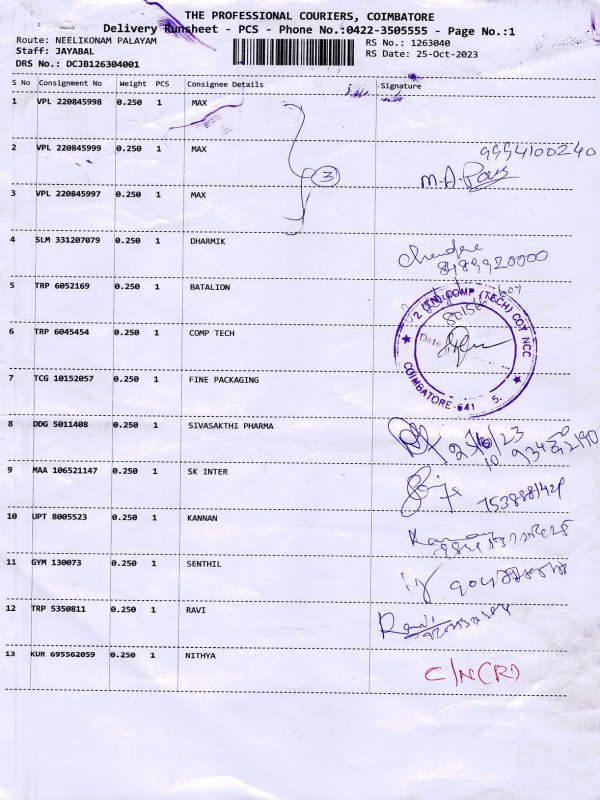 THE PROFESSIONAL COURIERS, COIMBATORE
Delivery Runsheet - PCS - Phone No.:0422-3505555 - Page No.:1
Route: NEELIKONAM PALAYAM
Staff: JAYABAL
DRS No.: DCJB126304001
RS No.: 1263040
RS Date: 25-Oct-2023
S No Consignment No Weight PCS Consignee Details Signature
1 VPL 220845998 0.250 1 MAX
2 VPL 220845999 0.250 1 MAX 9994100240
M.A.
3 VPL 220845997 0.250 1 MAX
3
4 SLM 331207079 0.250 1 DHARMIK
8489920000
5 TRP 6052169 0.250 1 BATALION
2 (TN) COMP (TECH) COY NCC
Date
COIMBATORE-641 5.
6 TRP 6045454 0.250 1 COMP TECH
7 TCG 10152057 0.250 1 FINE PACKAGING
8 DDG 5011408 0.250 1 SIVASAKTHI PHARMA
9 MAA 106521147 0.250 1 SK INTER
10 UPT 8005523 0.250 1 KANNAN
11 GYM 130073 0.250 1 SENTHIL
12 TRP 5350811 0.250 1 RAVI
Ravi
13 KUR 695562059 0.250 1 NITHYA C/N(R)